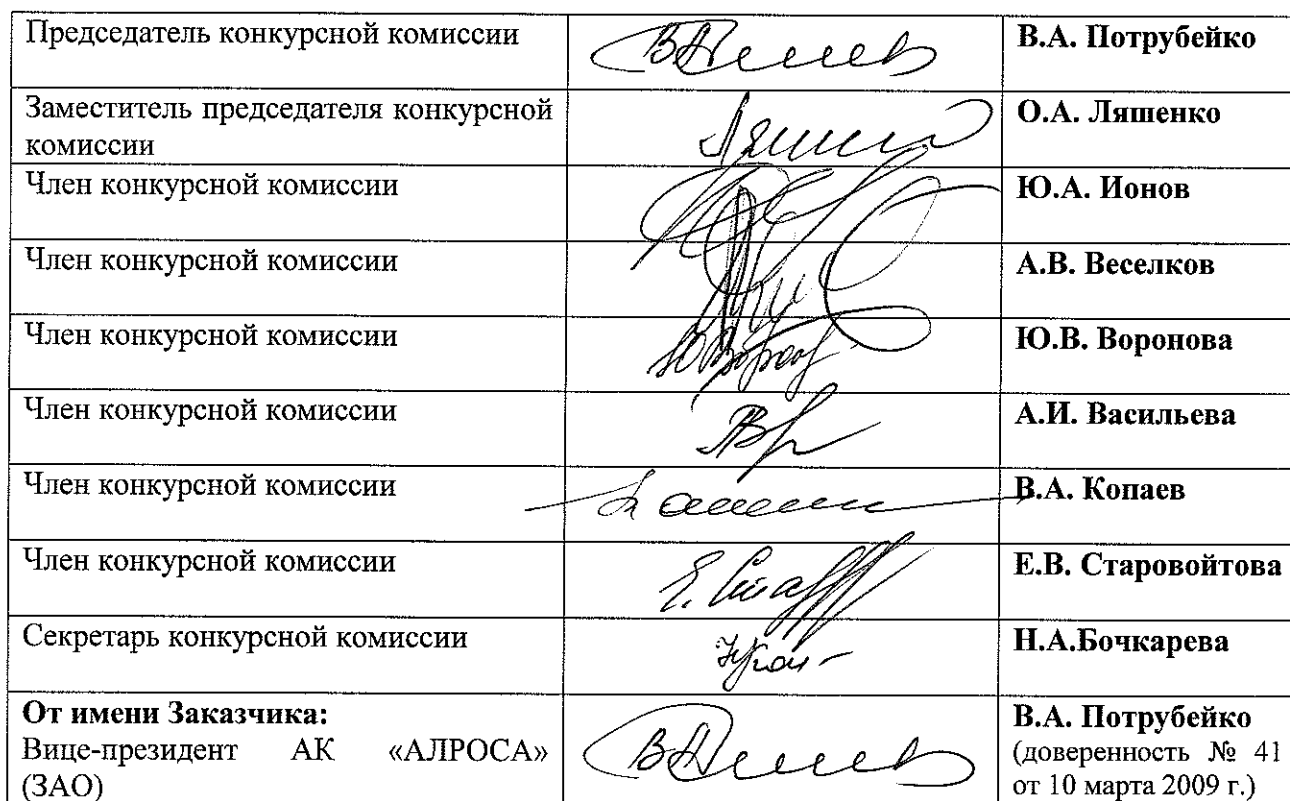 Председатель конкурсной комиссии
В.А. Потрубейко
Заместитель председателя конкурсной
комиссии
О.А. Ляшенко
Член конкурсной комиссии
Ю.А. Ионов
Член конкурсной комиссии
А.В. Веселков
Член конкурсной комиссии
Ю.В. Воронова
Член конкурсной комиссии
А.И. Васильева
Член конкурсной комиссии
В.А. Копаев
Член конкурсной комиссии
Е.В. Старовойтова
Секретарь конкурсной комиссии
Н.А.Бочкарева
От имени Заказчика:
Вице-президент АК «АЛРОСА»
(ЗАО)
В.А. Потрубейко
(доверенность № 41
от 10 марта 2009 г.)